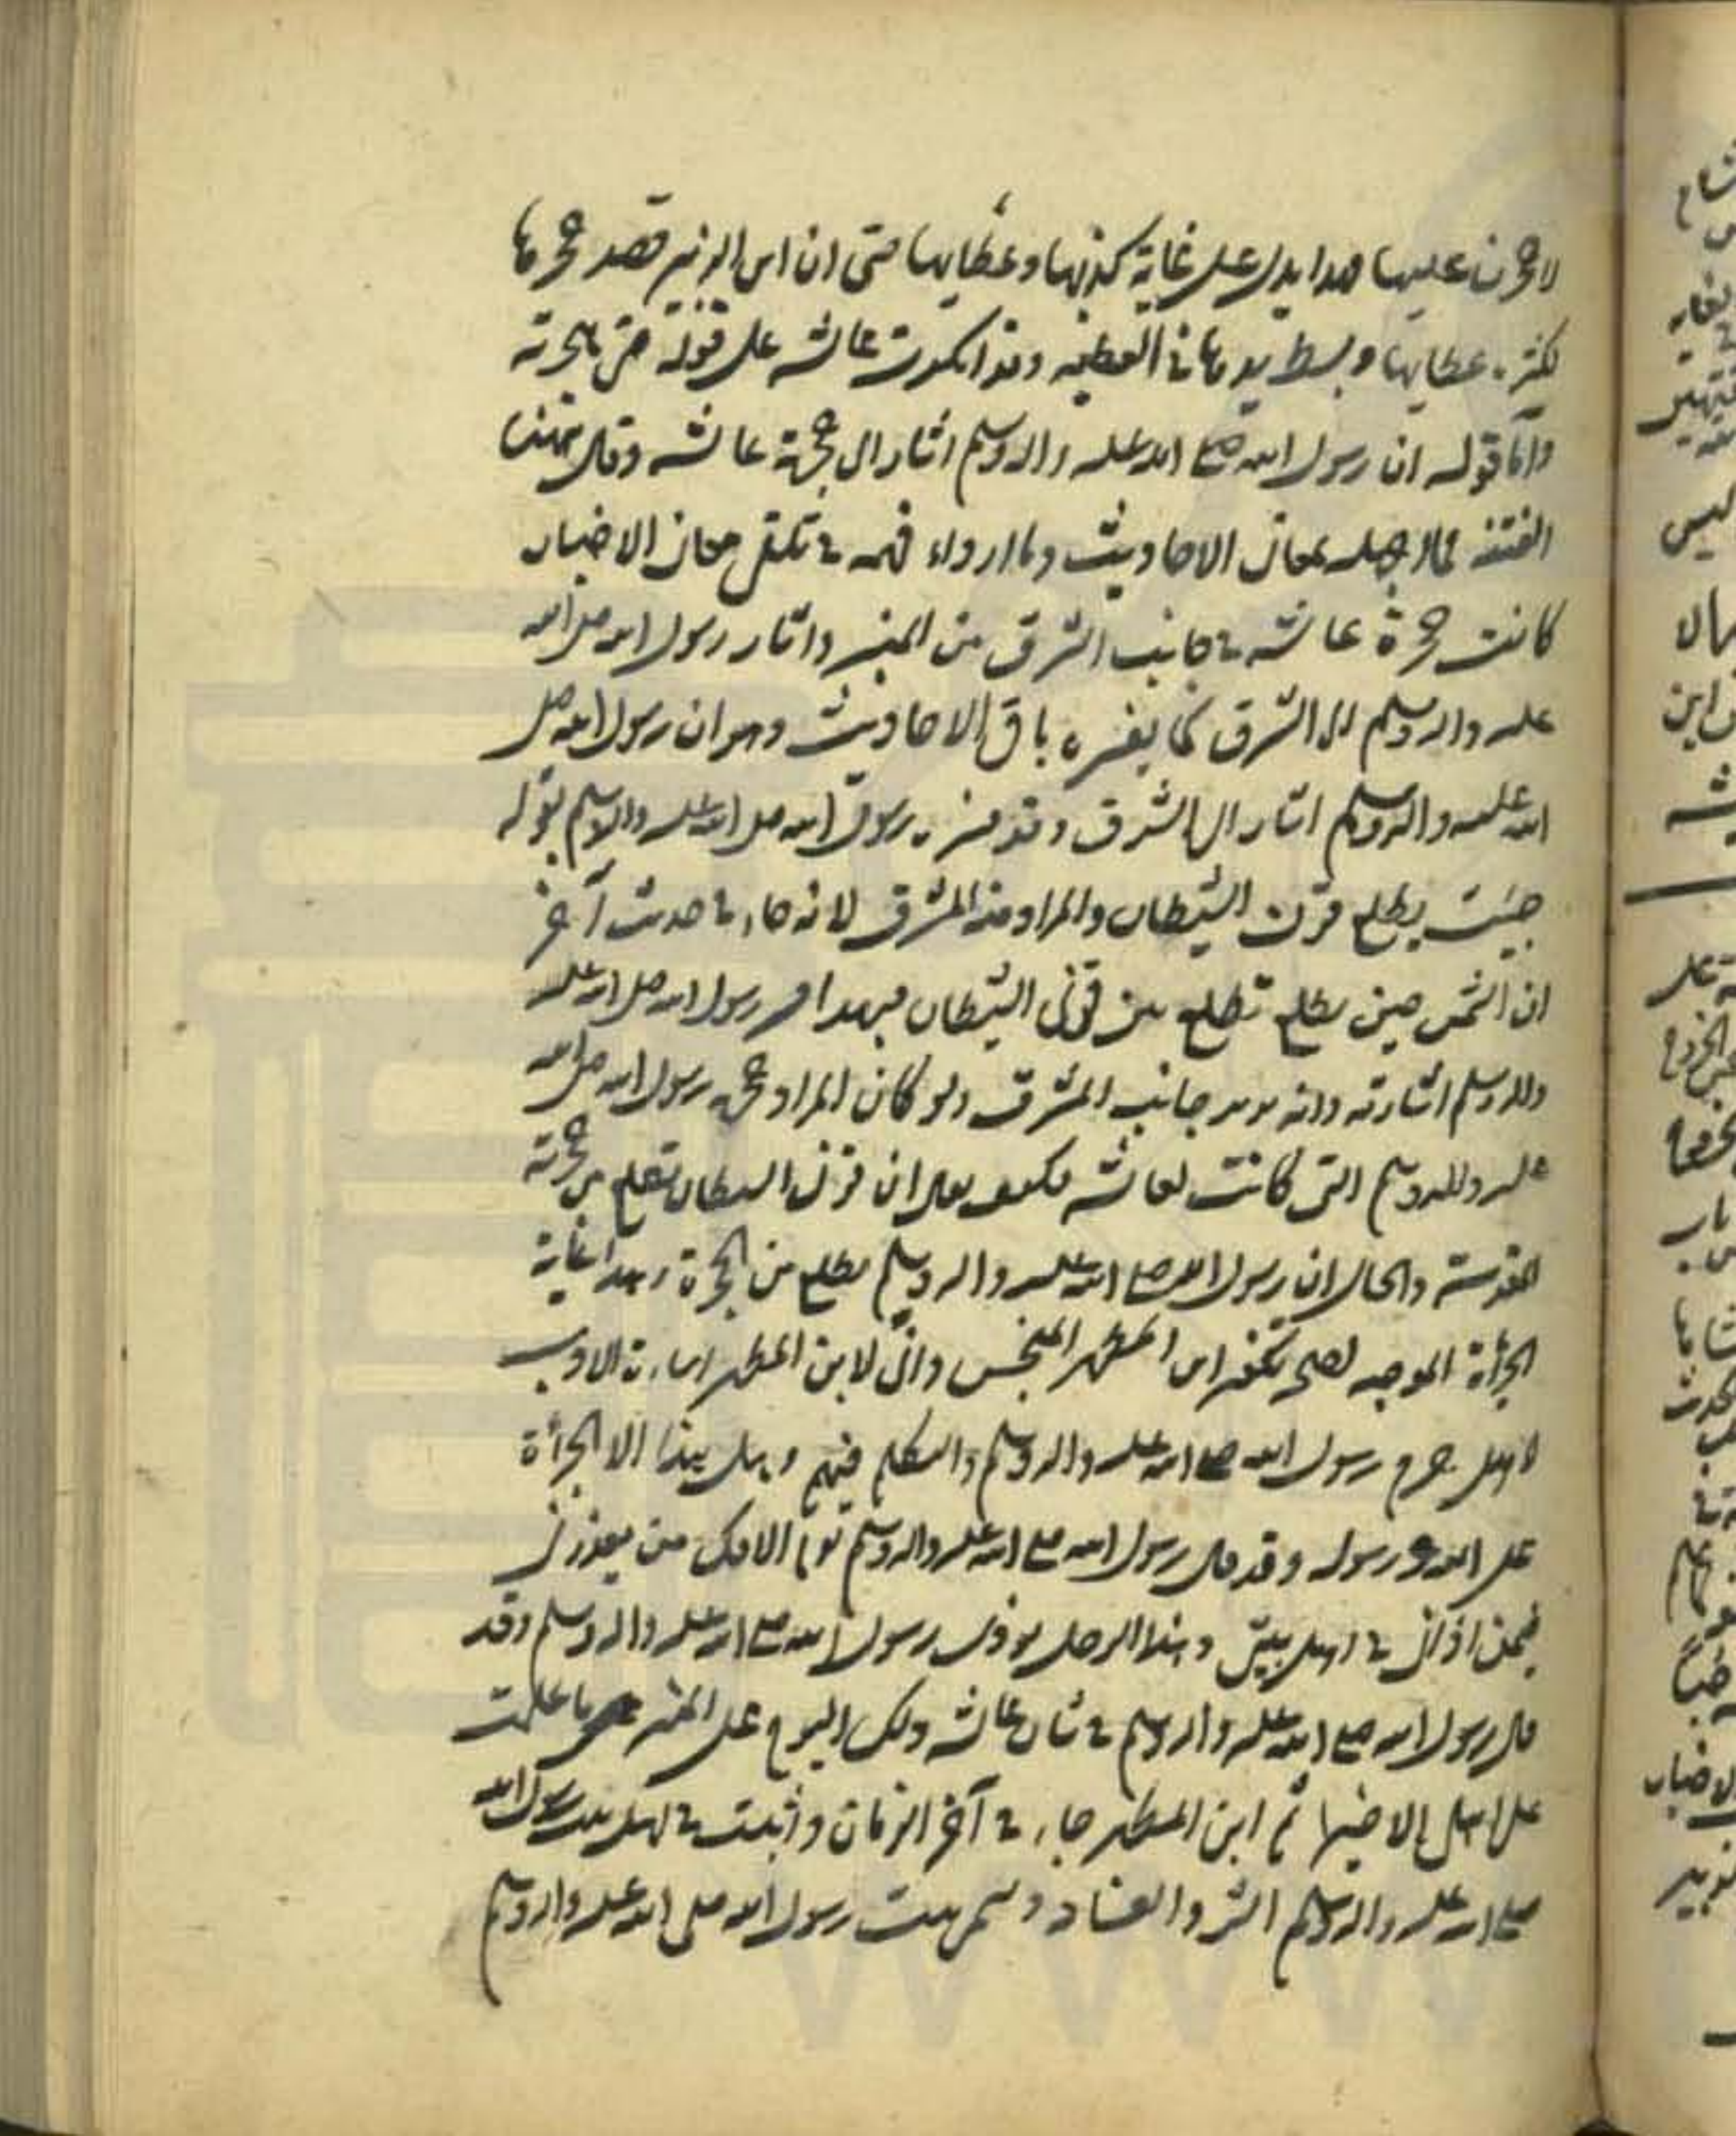 لاحجرن عليها هذا يدل على غاية كرمها وعطايها حتى ان ابن الزبير قصد حجرها
لكثرة عطايها وبسط يدها في العطية وقد انكرت عائشه على قوله حتى هاجرته
واما قوله ان رسول الله صلع الله عليه واله وسلم اشار الى حجرة عائشه وقال ههنا
الفتنة فما اجهله بمعانى الاحاديث وما اردأ فهمه في تلقى معانى الاخبار
كانت حجرة عائشه في جانب الشرق من المنبر واشار رسول الله صلى الله
عليه واله وسلم الى الشرق كما يفسره باقى الاحاديث وهو ان رسول الله صلى
الله عليه واله وسلم اشار الى الشرق وقد فسره رسول الله صلى الله عليه واله وسلم بقوله
حيث يطلع قرن الشيطان والمراد منه المشرق لانه جاء في حديث آخر
ان الشمس حين يطلع تطلع بين قرنى الشيطان فبهذا فسر رسول الله صلى الله عليه
واله وسلم اشارته وانه يريد جانب المشرق ولو كان المراد حجرة رسول الله صلى الله
عليه واله وسلم التى كانت لعائشه فكيف يقول ان قرن الشيطان تطلع من حجرته
المقدسة والحال ان رسول الله صلع الله عليه واله وسلم يطلع من الحجرة وهذا غاية
الجرأة الموجبه لصحه تكفير ابن المطهر المنجس وانى لابن المطهر اساءة الادب
لاهل حرم رسول الله صلع الله عليه واله وسلم والتكلم فيهم وهل هذا الا الجرأة
على الله ورسوله وقد قال رسول الله صلع الله عليه واله وسلم يوم الافك من يعذرنى
فيمن اذانى في اهل بيتى وهذا الرجل يوذى رسول الله صلع الله عليه واله وسلم وقد
قال رسول الله صلع الله عليه واله وسلم في شان عائشه ذلك اليوم على المنبر ما علمت
على اهلى الا خيرا ثم ابن المطهر جاء في آخر الزمان واثبت في اهل بيت رسول الله
صلع الله عليه واله وسلم الشر والفساد وسمى بيت رسول الله صلى الله عليه واله وسلم